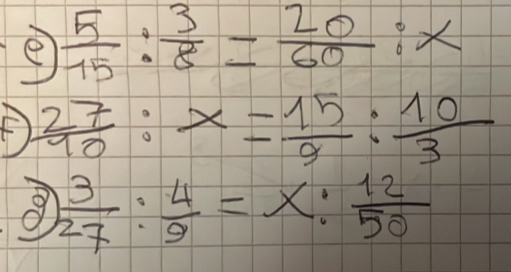 e) 5/15 : 3/8 = 20/60 : x
f) 27/10 : x = 15/9 : 10/3
g) 3/27 : 4/9 = x : 12/50